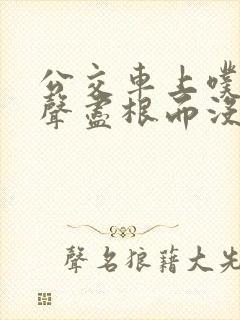 公交車上噗
聲盡根而沒
聲名狼藉大先